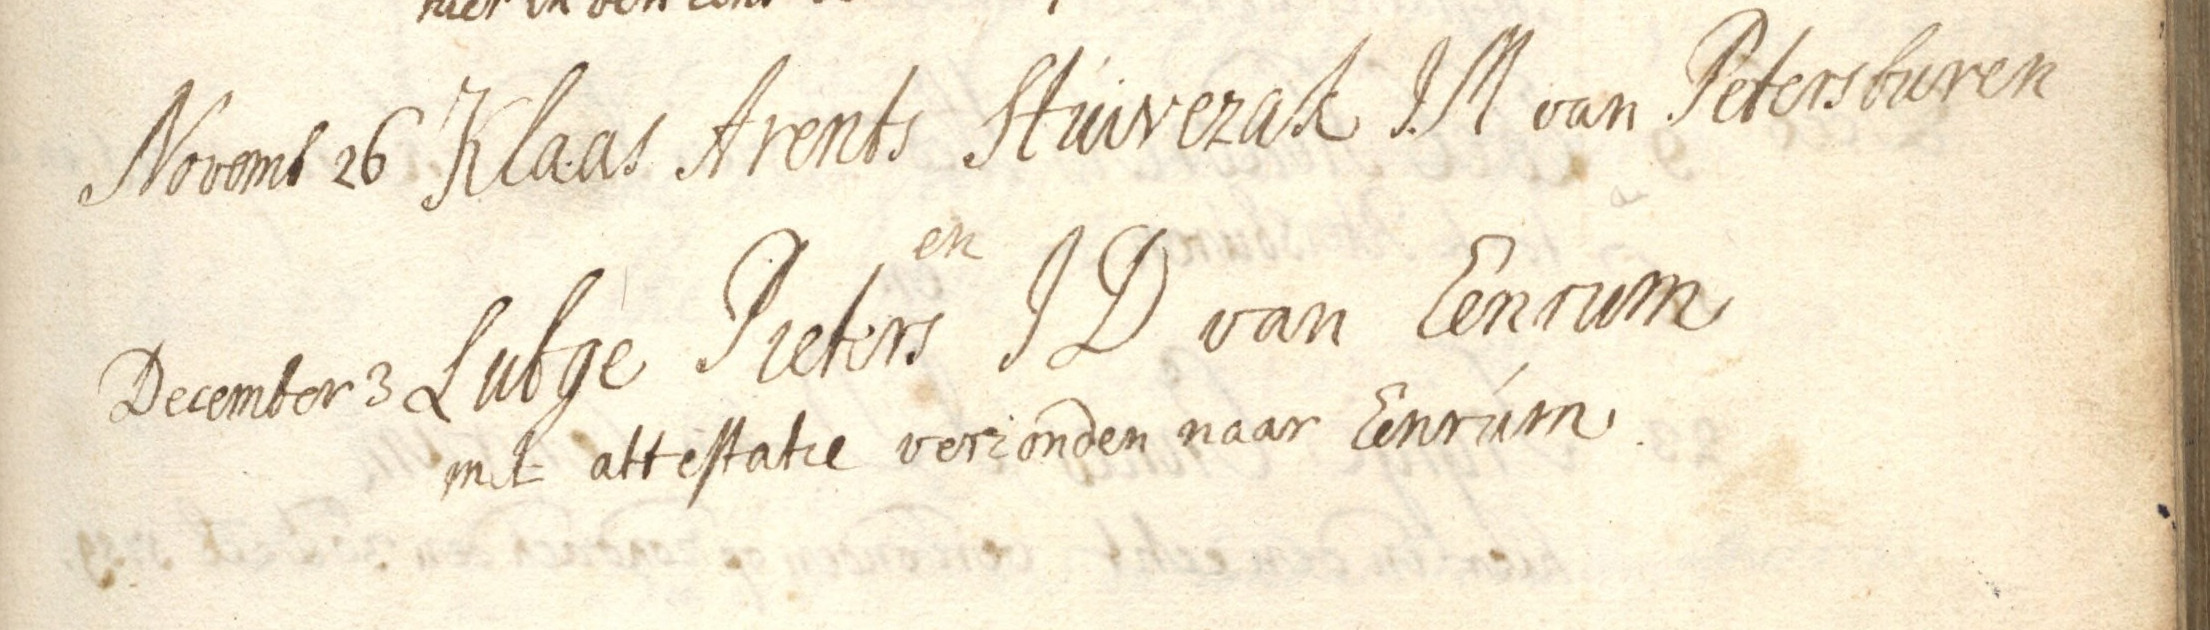 hier in den echt
Novemb 26 Klaas Arents Stuivezak J.M van Petersburen
en
December 3 Lubge Pieters J D van Eenrum
mit attestatie verzonden naar Eenrum.